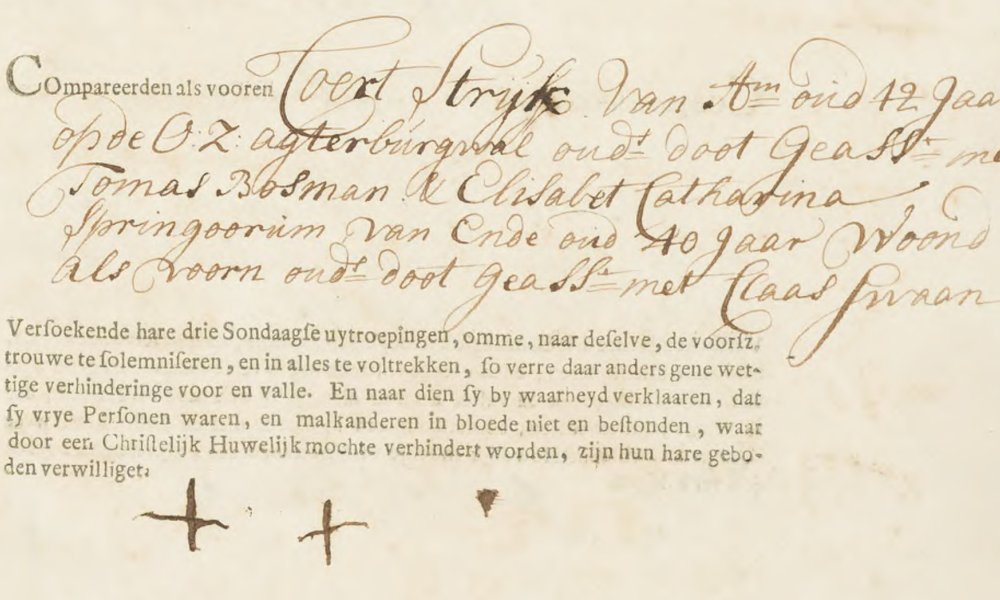 Compareerden als vooren Coert Strijk Van Am oud 42 Jaa
op de O: Z: agterburgwal oud.s doot Geass.t me
Tomas Bosman & Elisabet Catharina
Springoorum van Ende oud 40 Jaar Woond
Als voorn oud.s doot geass.t met Claas Swaan
Verſoekende hare drie Sondaagſe uytroepingen, omme, naar deſelve, de voorſz.
trouwe te ſolemniſeren, en in alles te voltrekken, ſo verre daar anders gene wet-
tige verhinderinge voor en valle. En naar dien ſy by waarheyd verklaaren, dat
ſy vrye Perſonen waren, en malkanderen in bloede niet en beſtonden, waar
door een Chriſtelijk Huwelijk mochte verhindert worden, zijn hun hare gebo-
den verwilliget.